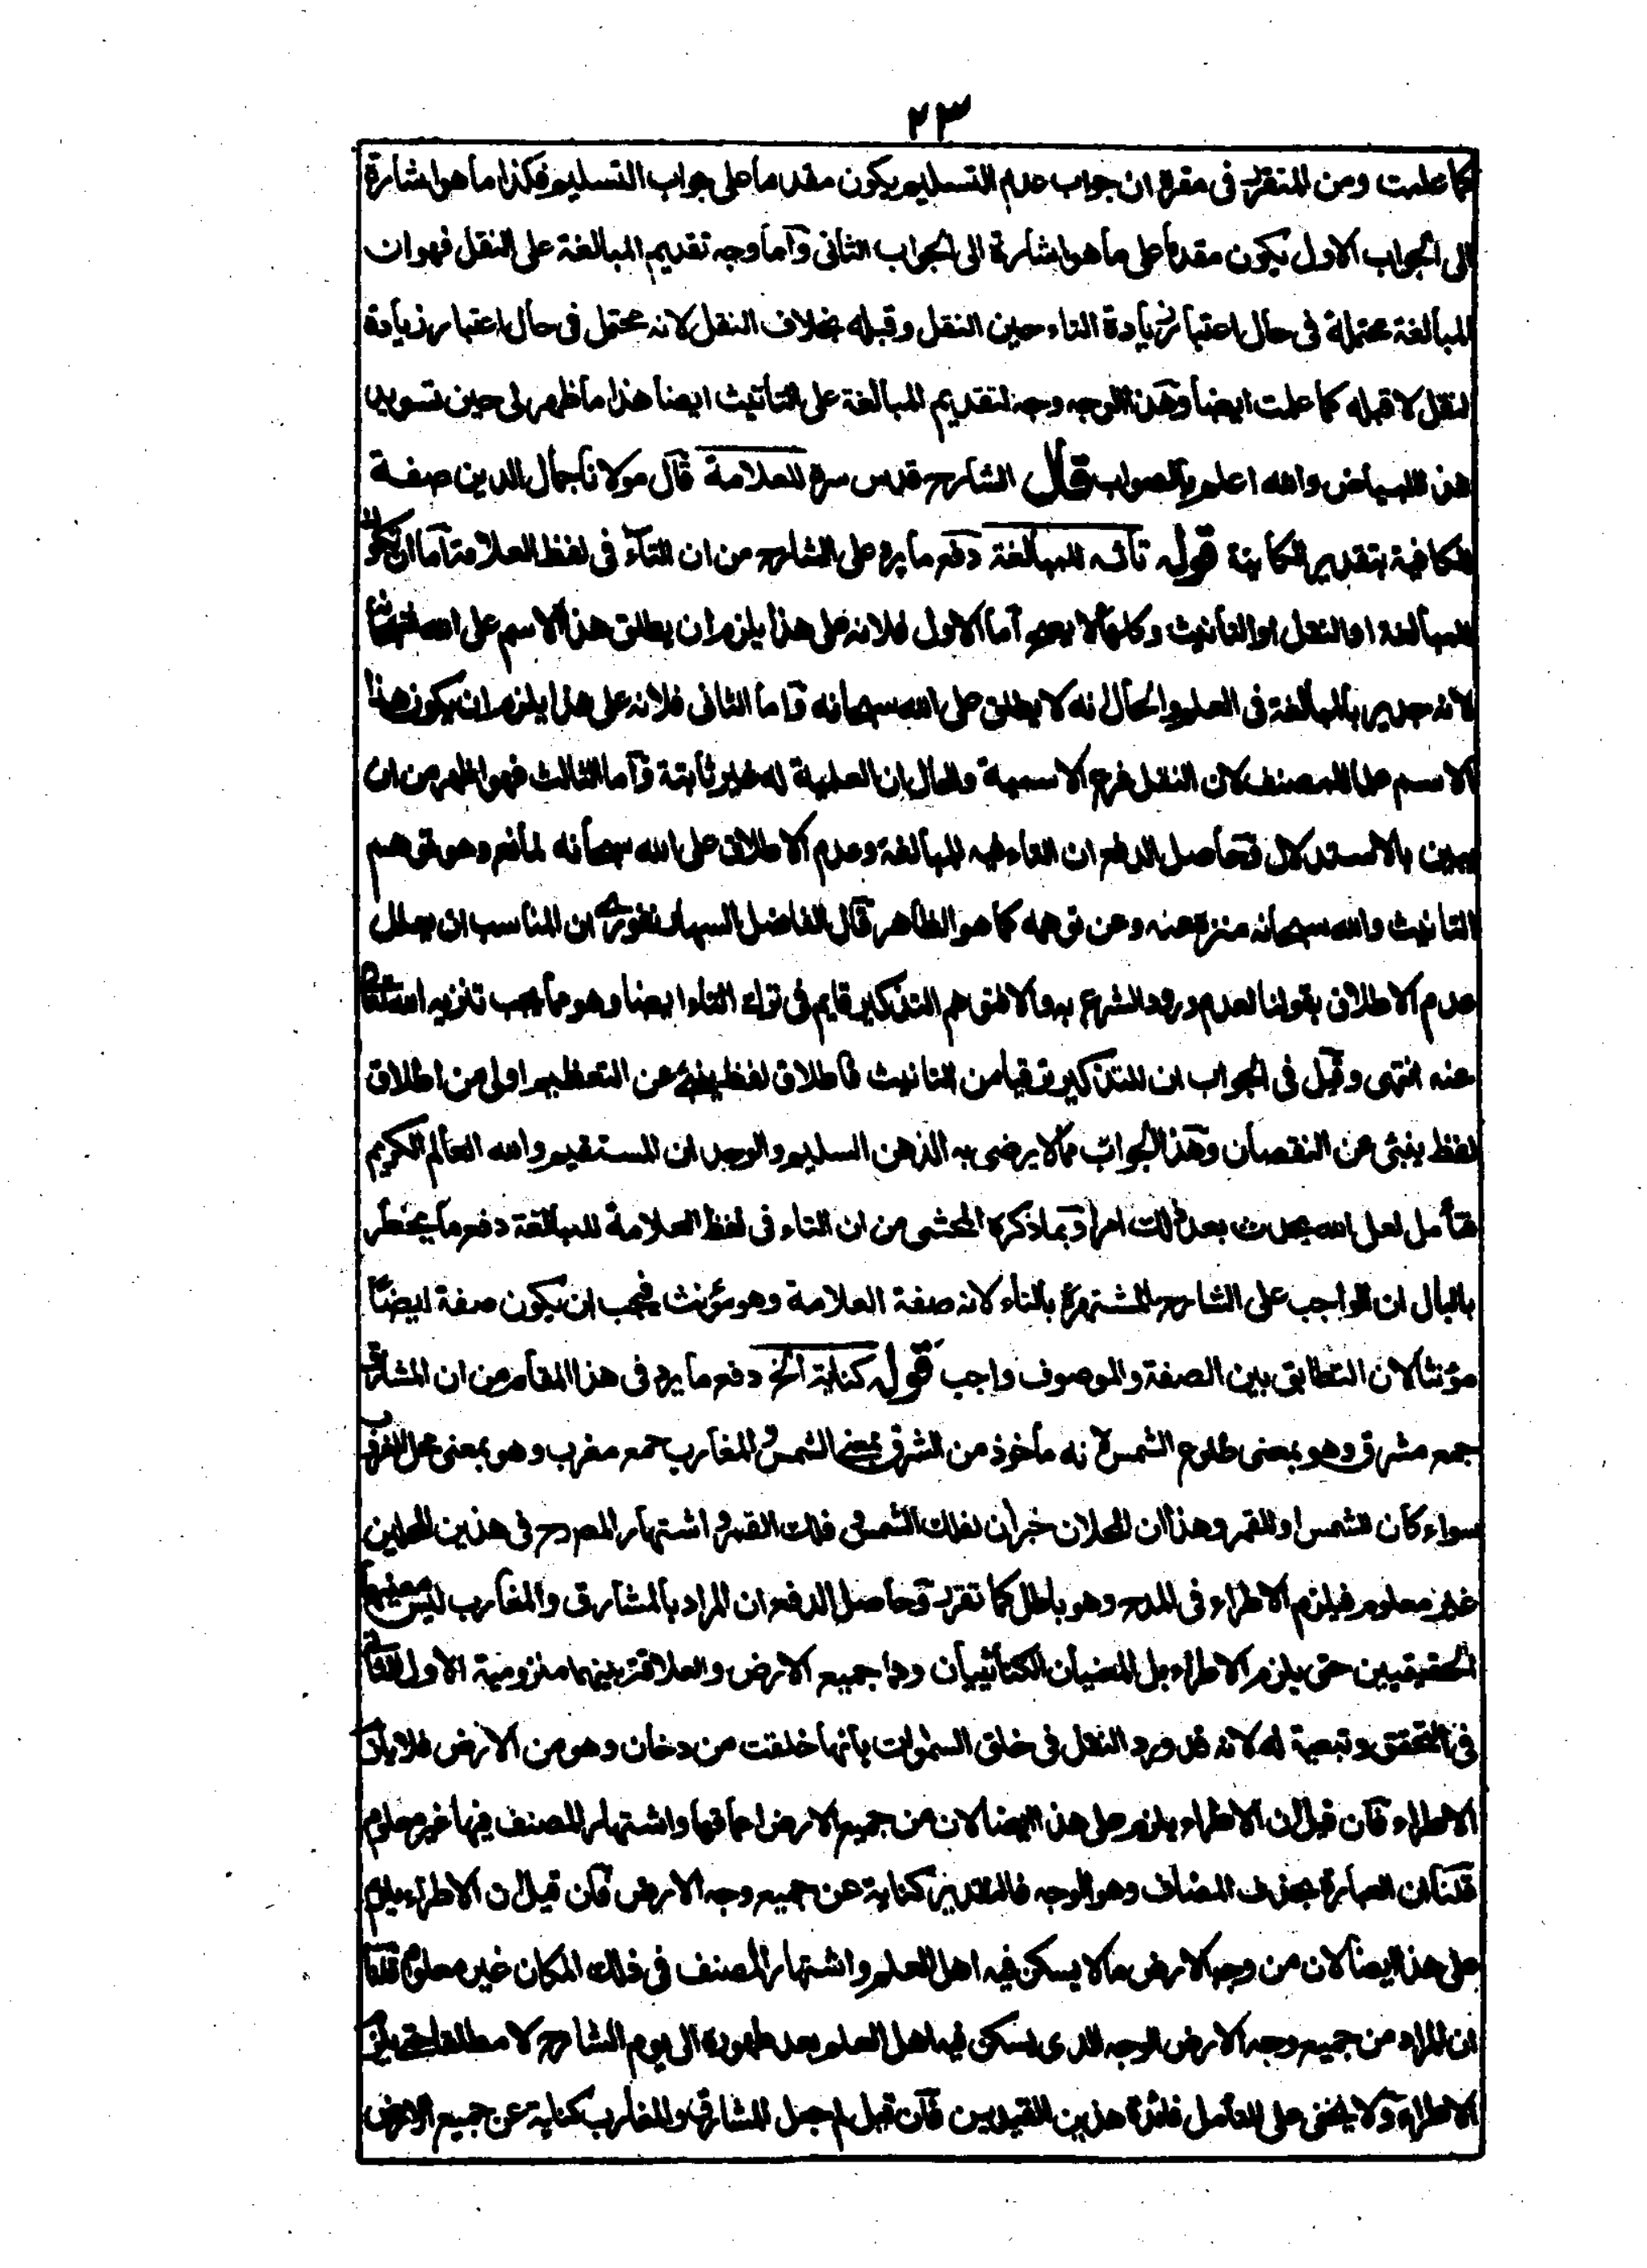 ٢٣
كما علمت ومن المتقرر فى مقره ان جواب عدم التسليم يكون مقدما على جواب التسليم فكذا ما هو اشارة
الى الجواب الاول يكون مقدما على ما هو اشارة الى الجواب الثانى وأما وجه تقديم المبالغة على النقل فهو ان
المبالغة محتملة فى حال اعتبار زيادة التاء حين النقل وقبله بخلاف النقل لانه محتمل فى حال اعتبار زيادة
لنقل لا قبله كما علمت ايضا وهذا الوجه وجه لتقديم المبالغة على التأنيث ايضا هذا ما ظهر لى حين تسويد
هذا البياض والله اعلم بالصواب قال الشارح قدس سره العلامة قال مولانا جمال الدين صفة
الكافية بتقدير الكاينة قوله تائه للمبالغة دفع ما يرد على الشارح من ان التاء فى لفظ العلامة اما ان يكون
للمبالغة او النقل او التأنيث وكلها لا يصح أما الاول فلانه على هذا يلزم ان يطلق هذا الاسم على الله سبحانه
لانه جدير بالمبالغة فى العلم والحال انه لا يطلق على الله سبحانه وأما الثانى فلانه على هذا يلزم ان يكون هذا
الاسم علما للمصنف لان النقل فرع الاسمية والحال ان العلمية له غير ثابتة وأما الثالث فهو اظهر من ان
يبين بالاستدلال وحاصل الدفع ان التاء فيه للمبالغة وعدم الاطلاق على الله سبحانه لمانع وهو توهم
التانيث والله سبحانه منزه عنه وعن توهمه كما هو الظاهر قال الفاضل السهارنفورى ان المناسب ان يعلل
عدم الاطلاق بقولنا لعدم ورود الشرع به والا فتوهم التذكير قايم فى ترك التاء ايضا وهو مما يجب تنزيه الله تعالى
عنه انتهى وقيل فى الجواب ان للتذكير ترقيا من التانيث فاطلاق لفظ ينبئ عن التعظيم اولى من اطلاق
لفظ ينبئ عن النقصان وهذا الجواب مما لا يرضى به الذهن السليم والوجدان المستقيم والله العالم الكريم
فتأمل لعل الله يحدث بعد ذلك امرا وبما ذكره المحشى من ان التاء فى لفظ العلامة للمبالغة دفع ما يخطر
بالبال ان الواجب على الشارح المشتهرة بالتاء لانه صفة العلامة وهو مؤنث فيجب ان يكون صفة ايضا
مؤنثا لان التطابق بين الصفة والموصوف واجب قوله كناية الخ دفع ما يرد فى هذا المقام من ان المشارق
جمع مشرق وهو بمعنى طلوع الشمس لانه مأخوذ من الشرق بمعنى الشمس والمغارب جمع مغرب وهو بمعنى محل الغروب
سواء كان للشمس او للقمر وهذان المحلان خبران لفلك الشمس وفلك القمر واشتهار الممدوح فى هذين المحلين
غير معلوم فيلزم الاطراء فى المدح وهو باطل كما تقرر وحاصل الدفع ان المراد بالمشارق والمغارب ليس معنيهما
الحقيقيين حتى يلزم الاطراء بل المعنيان الكنائيان وهما جميع الارض والعلاقة بينهما ملزومية الاول للثانى
فى التحقق وتبعية له لانه قد ورد النقل فى خلق السموات بانها خلقت من دخان وهو من الارض فلا يلزم
الاطراء فأن قيل ان الاطراء يلزم على هذا ايضا لان من جميع الارض اعماقها واشتهار المصنف فيها غير معلوم
قلنا ان العبارة بحذف المضاف وهو الوجه فالتقدير كناية عن جميع وجه الارض فأن قيل ان الاطراء يلزم
على هذا ايضا لان من وجه الارض ما لا يسكن فيه اهل العلم واشتهار المصنف فى ذلك المكان غير معلوم قلنا
ان المراد من جميع وجه الارض الوجه الذى يسكن فيه اهل العلم بعد ظهوره الى يوم الشارح لا مطلقا حتى يلزم
الاطراء ولا يخفى على المتأمل فائدة هذين القيدين فأن قيل لم جعل المشارق والمغارب كناية عن جميع الارض